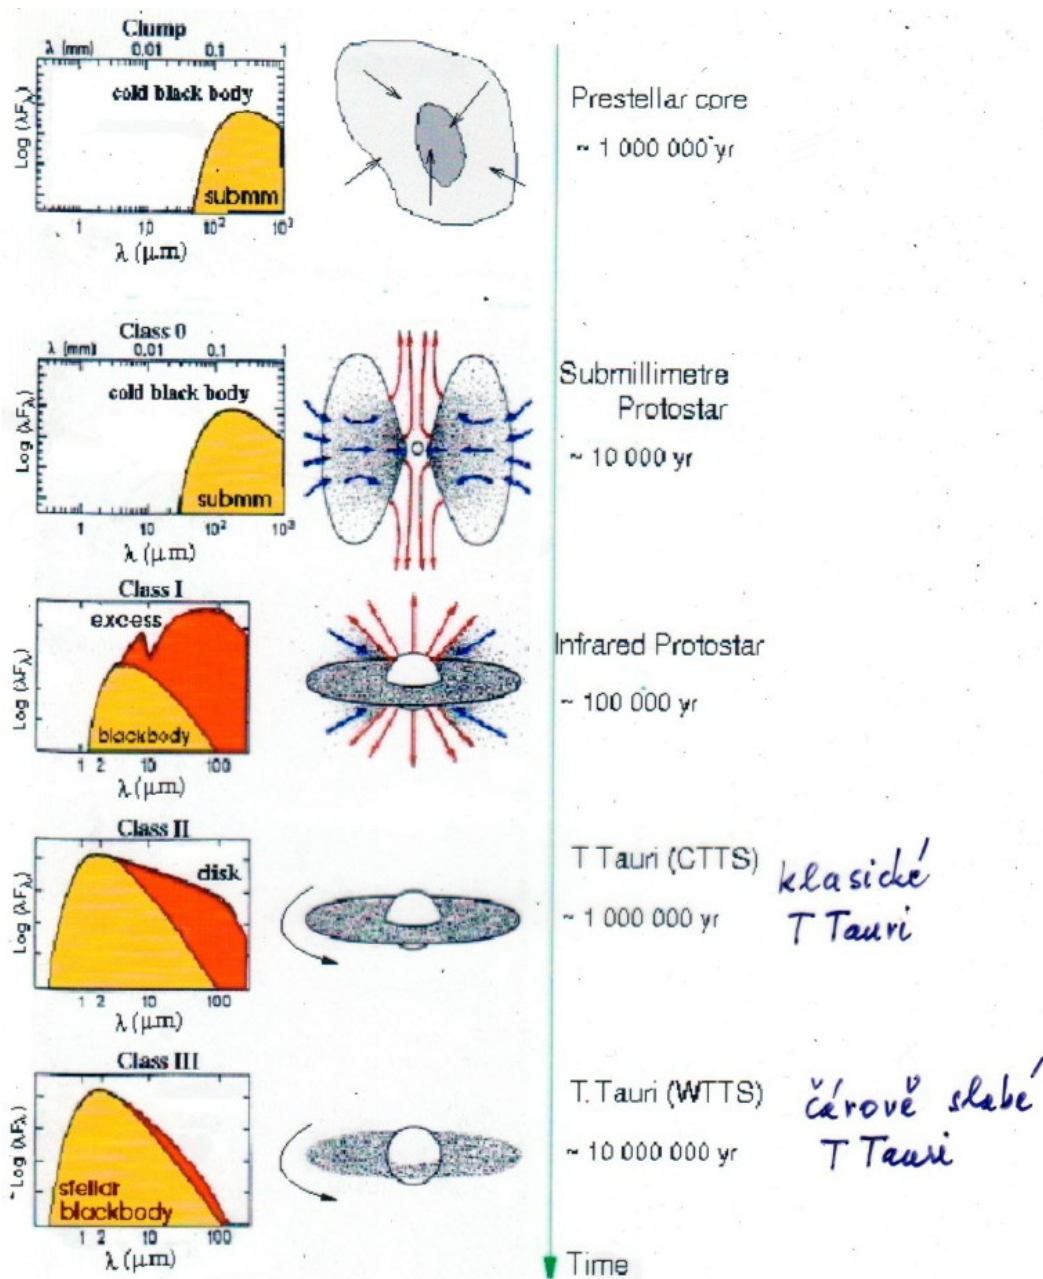 Clump
λ (mm) 0,01 0,1 1
cold black body
submm
Log (λFλ)
1 10 10² 10³
λ (μ.m)
Prestellar core
~ 1 000 000 yr
Class 0
λ (mm) 0,01 0,1 1
cold black body
submm
Log (λFλ)
1 10 10² 10³
λ (μ.m)
Submillimetre
Protostar
~ 10 000 yr
Class I
excess
blackbody
Log (λFλ)
1 2 10 100
λ (μ.m)
Infrared Protostar
~ 100 000 yr
Class II
disk
Log (λFλ)
1 2 10 100
λ (μ.m)
T Tauri (CTTS)
~ 1 000 000 yr
klasické
T Tauri
Class III
stellar
blackbody
Log (λFλ)
1 2 10 100
λ (μ.m)
T. Tauri (WTTS)
~ 10 000 000 yr
čárově slabé
T Tauri
Time